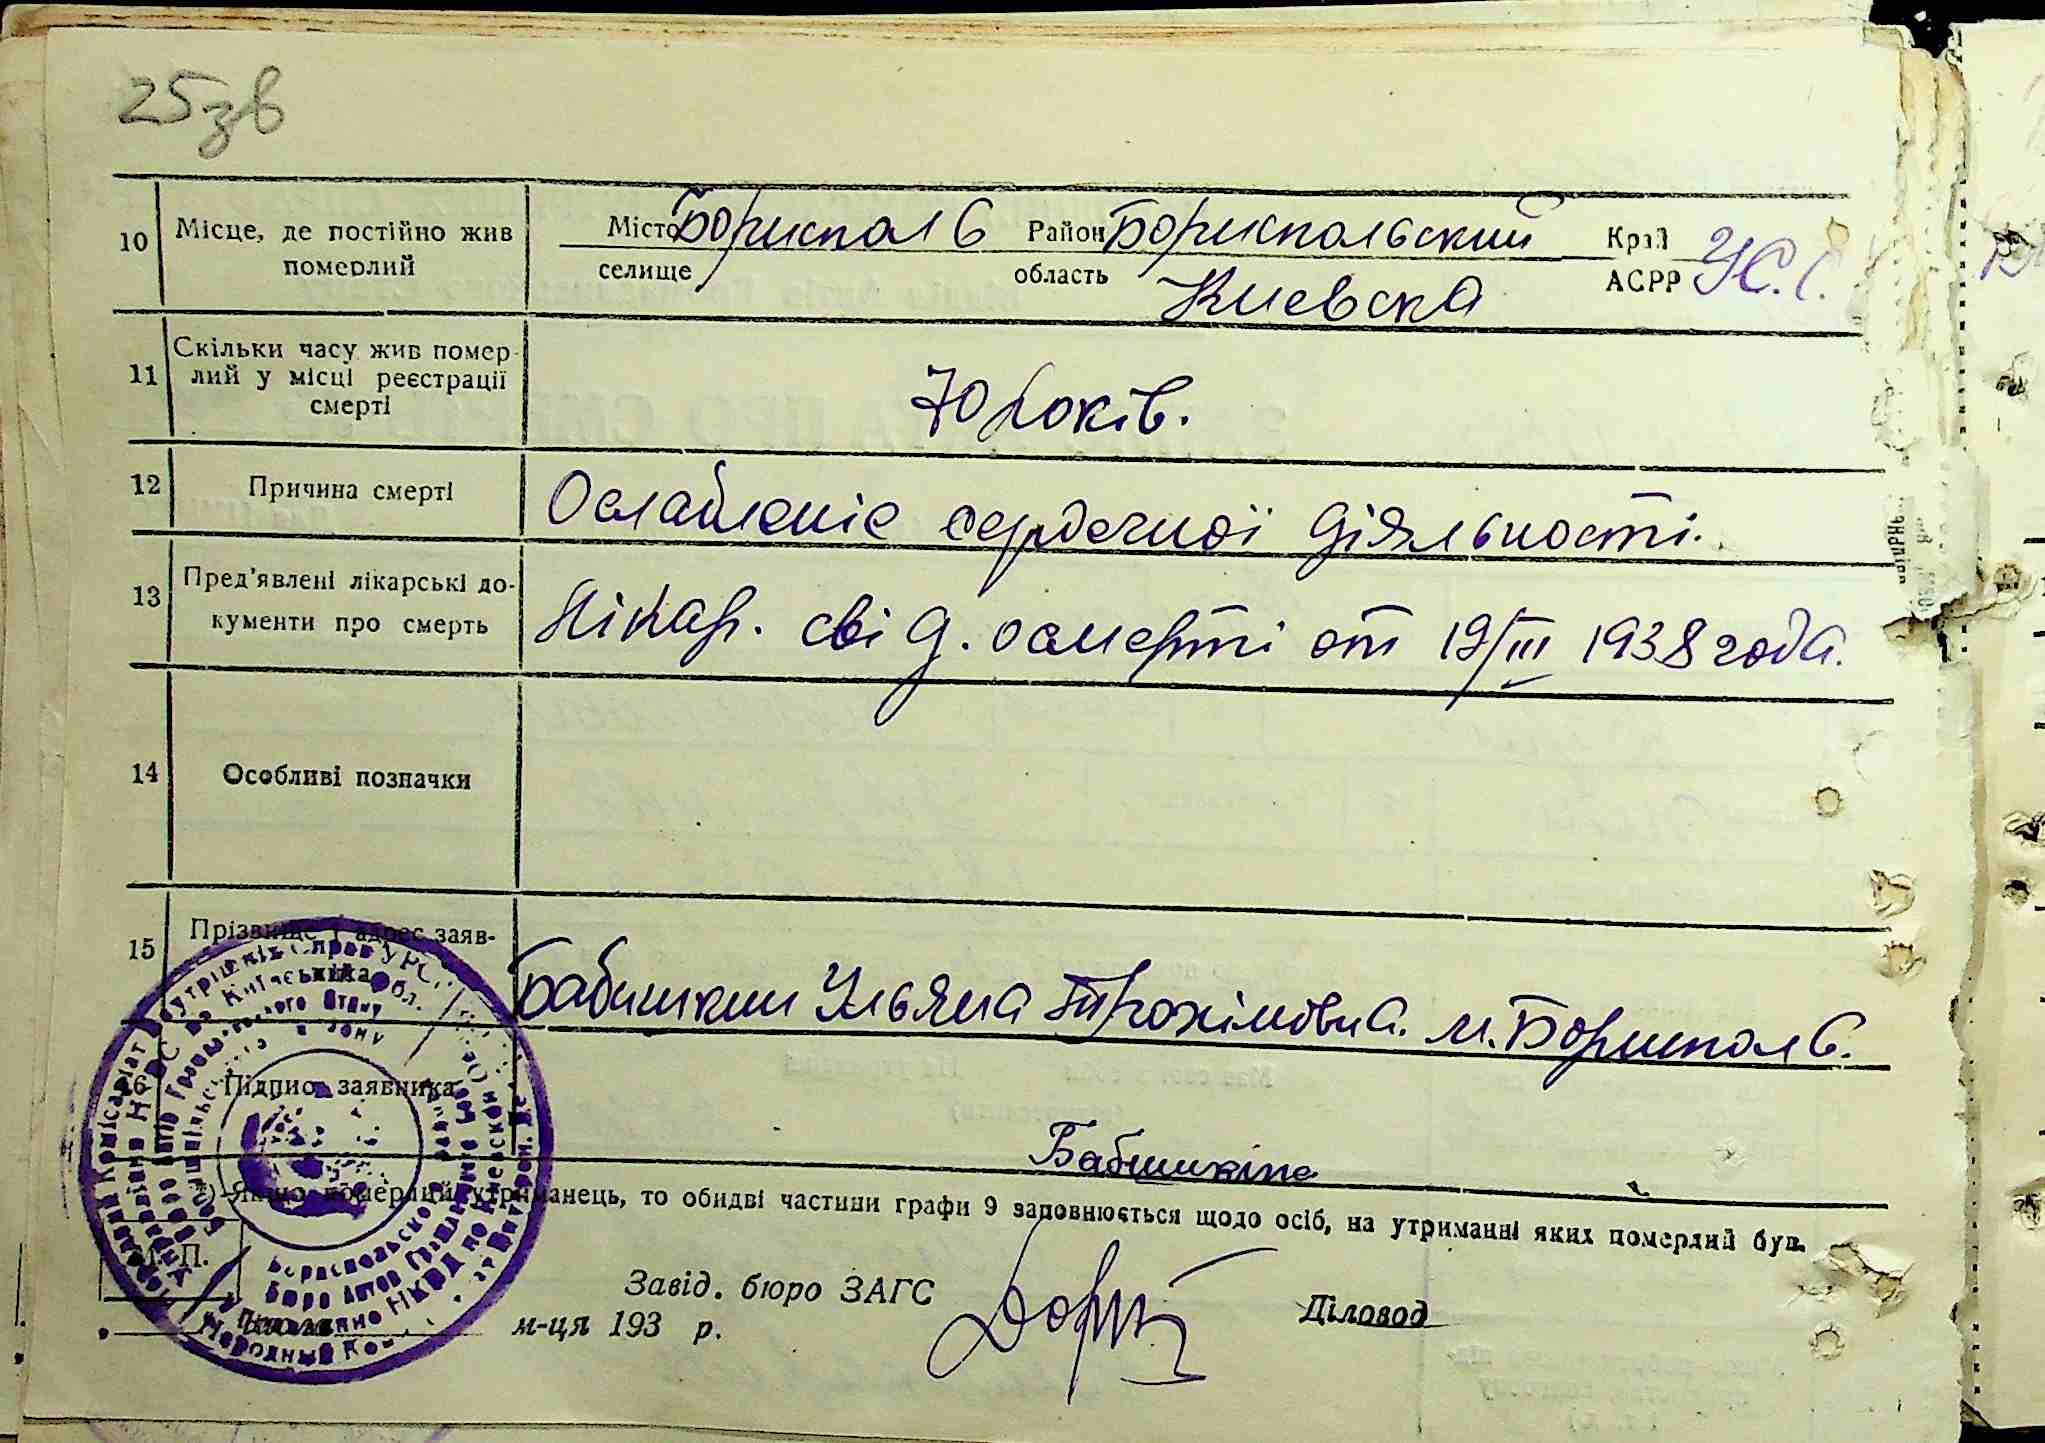 25зв
10 Місце, де постійно жив померлий
Місто Борисполь Район Бориспольский Край
селище область Киевска АСРР УС.С.
11 Скільки часу жив помер-
лий у місці реєстрації
смерті
70 років.
12 Причина смерті Ослабленіе сердечної діяльності.
13 Пред'явлені лікарські до-
кументи про смерть
Лікар. свід. осмерті от 19/III 1938 года.
14 Особливі позначки
15 Прізвище і адрес заяв-
ника
Бабишкин Ульяна Трохімовна. м. Борисполь.
16 Підпис заявника
Бабишкіна
*) Якщо померлий утриманець, то обидві частини графи 9 заповнюється щодо осіб, на утриманні яких померлий був.
М. П.
Завід. бюро ЗАГС
Діловод
м-ця 193 р.
Народній Комісаріат Внутрішніх Справ УРСР
Управління НКВС по Київській обл.
Бюро Актів Громадянського Стану
Бориспольского района
Бюро Актов Гражданского
Управление НКВД по Киевской
Народный Ком